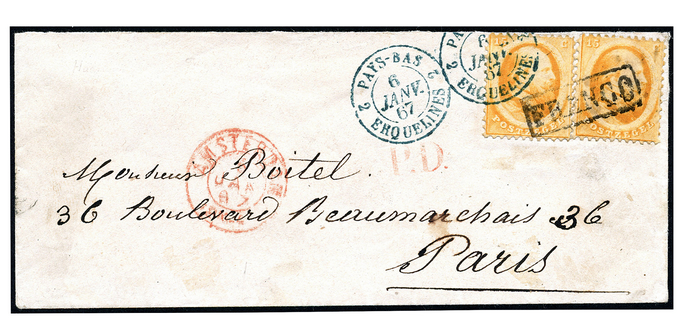 2 PAYS-BAS 2
6
JANV.
67
ERQUELINES
2 PA
6
JANV.
67
ERQUELINES
15 C
15
POSTZEGEL
FRANCO
AMSTERDAM
P.D.
Monsieur Boitel.
36 Boulevard Beaumarchais 36
Paris